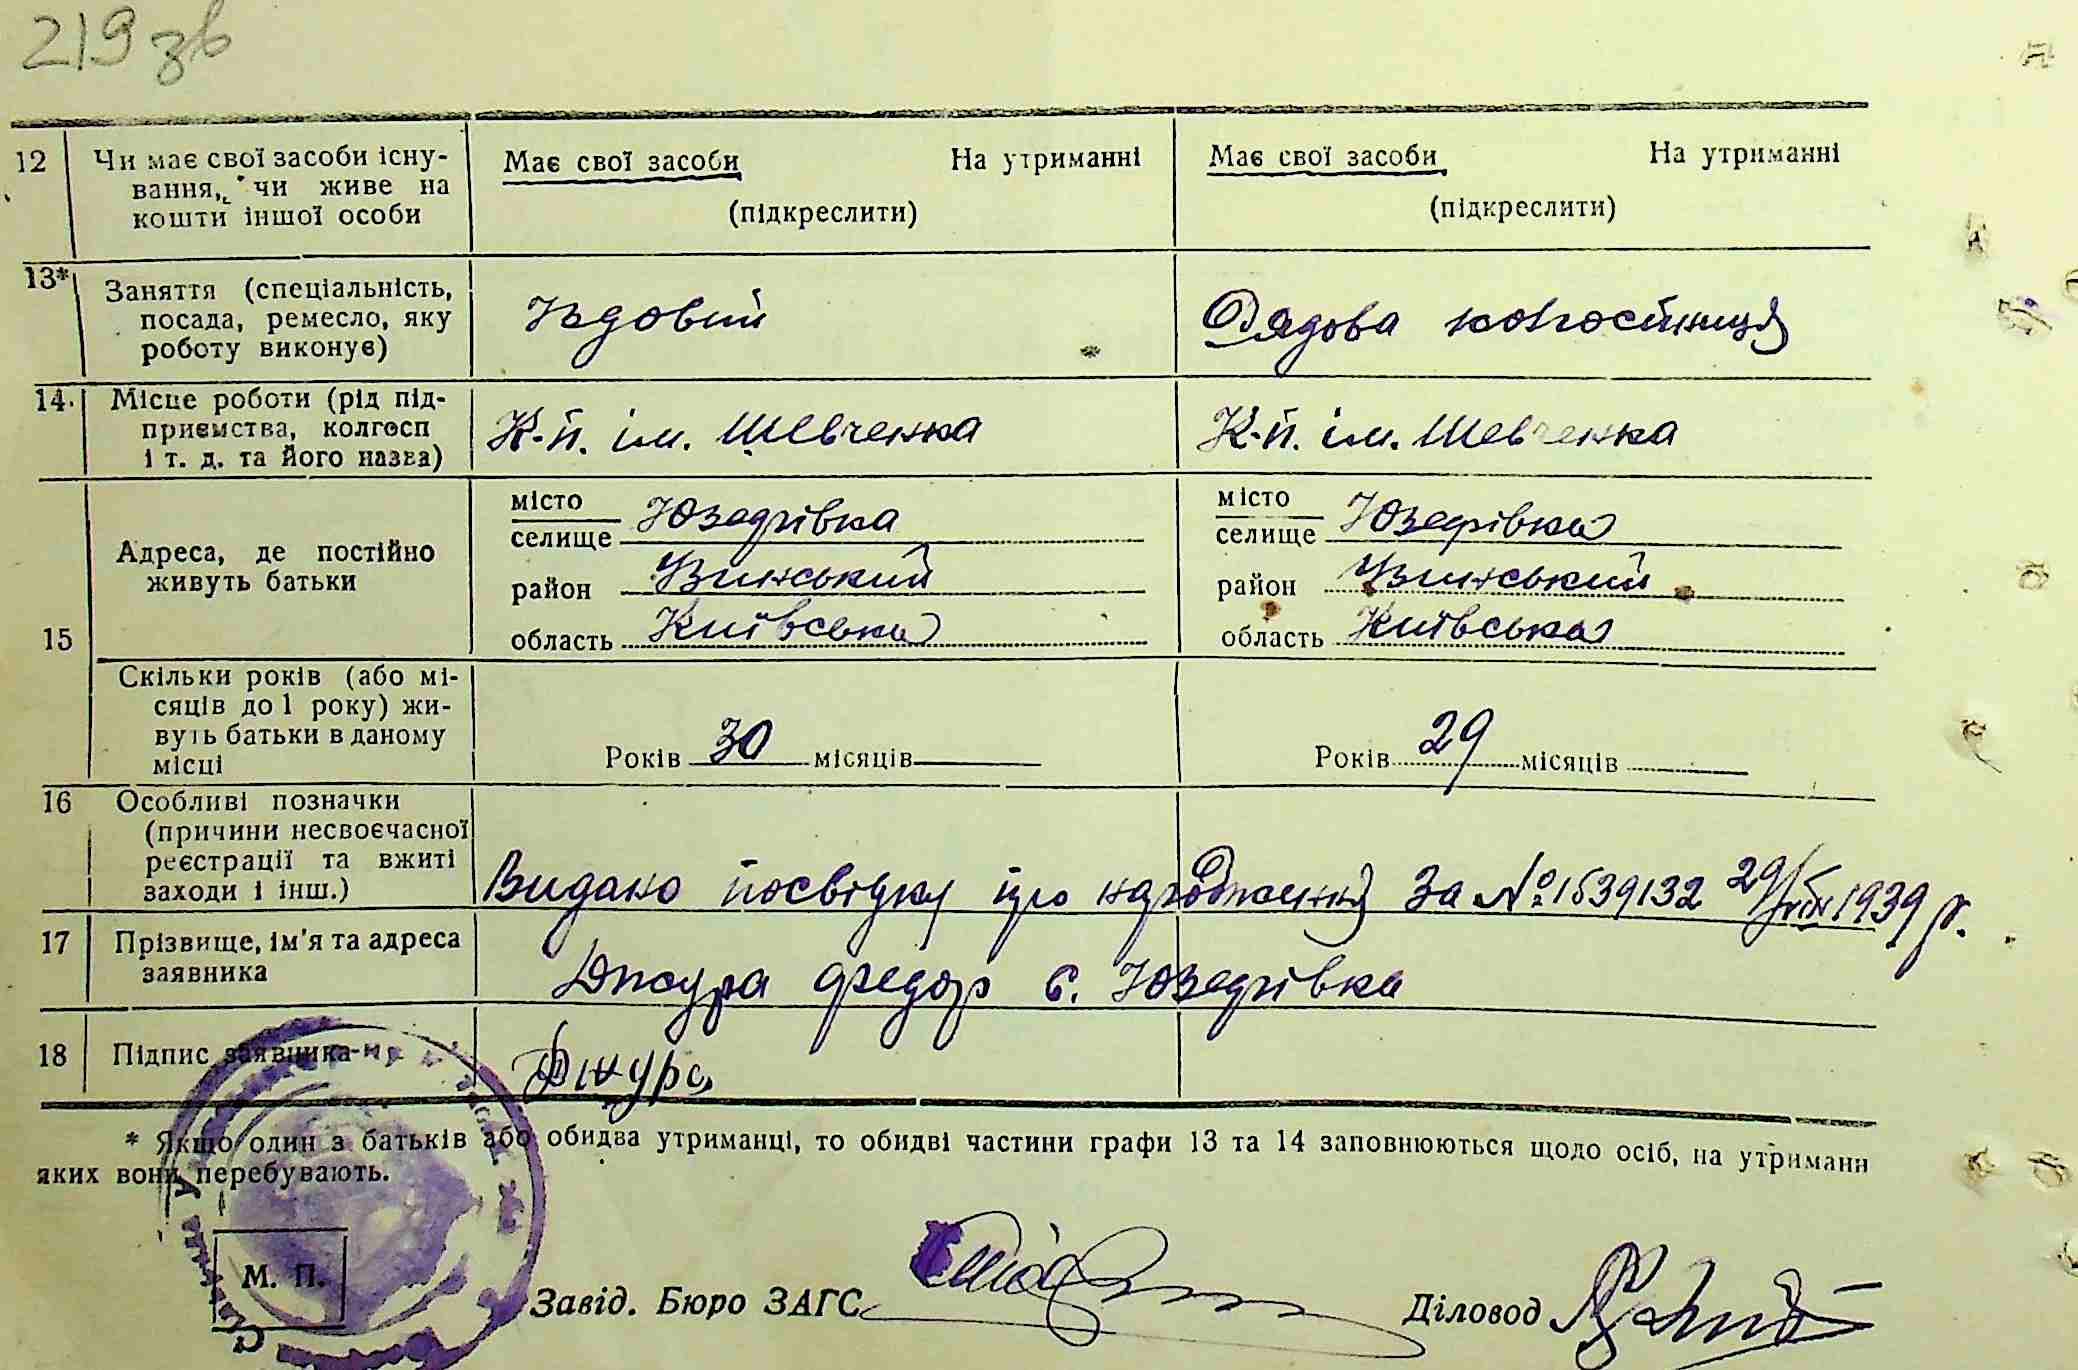 219 зв
12 Чи має свої засоби існу- Має свої засоби На утриманні Має свої засоби На утриманні
вання, чи живе на
кошти іншої особи (підкреслити) (підкреслити)
13* Заняття (спеціальність,
посада, ремесло, яку Їздовий Рядова колгоспниця
роботу виконує)
14. Місце роботи (рід під-
приємства, колгосп К-п. ім. Шевченка К-п. ім. Шевченка
і т. д. та його назва)
місто місто
селище Юзефівка селище Юзефівка
Адреса, де постійно
живуть батьки район Узинський район Узинський
15 область Київська область Київська
Скільки років (або мі-
сяців до 1 року) жи-
вуть батьки в даному
місці Років 30 місяців Років 29 місяців
16 Особливі позначки
(причини несвоєчасної
реєстрації та вжиті
заходи і інш.) Видано посвідку про народження За № 1539132 29/VIII 1939 р.
17 Прізвище, ім'я та адреса
заявника Джура Федор с. Юзефівка
18 Підпис заявника Джура
* Якщо один з батьків або обидва утриманці, то обидві частини графи 13 та 14 заповнюються щодо осіб, на утриманн
яких вони перебувають.
М. П.
Завід. Бюро ЗАГС Діловод